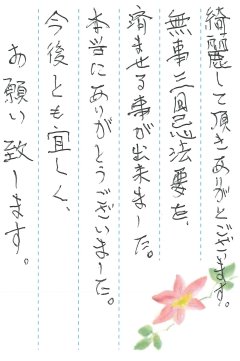 綺麗して頂きありがとございます。
無事三回忌法要を、
済ませる事が出来ました。
本当にありがとうございました。
今後とも宜しく、
お願い致します。